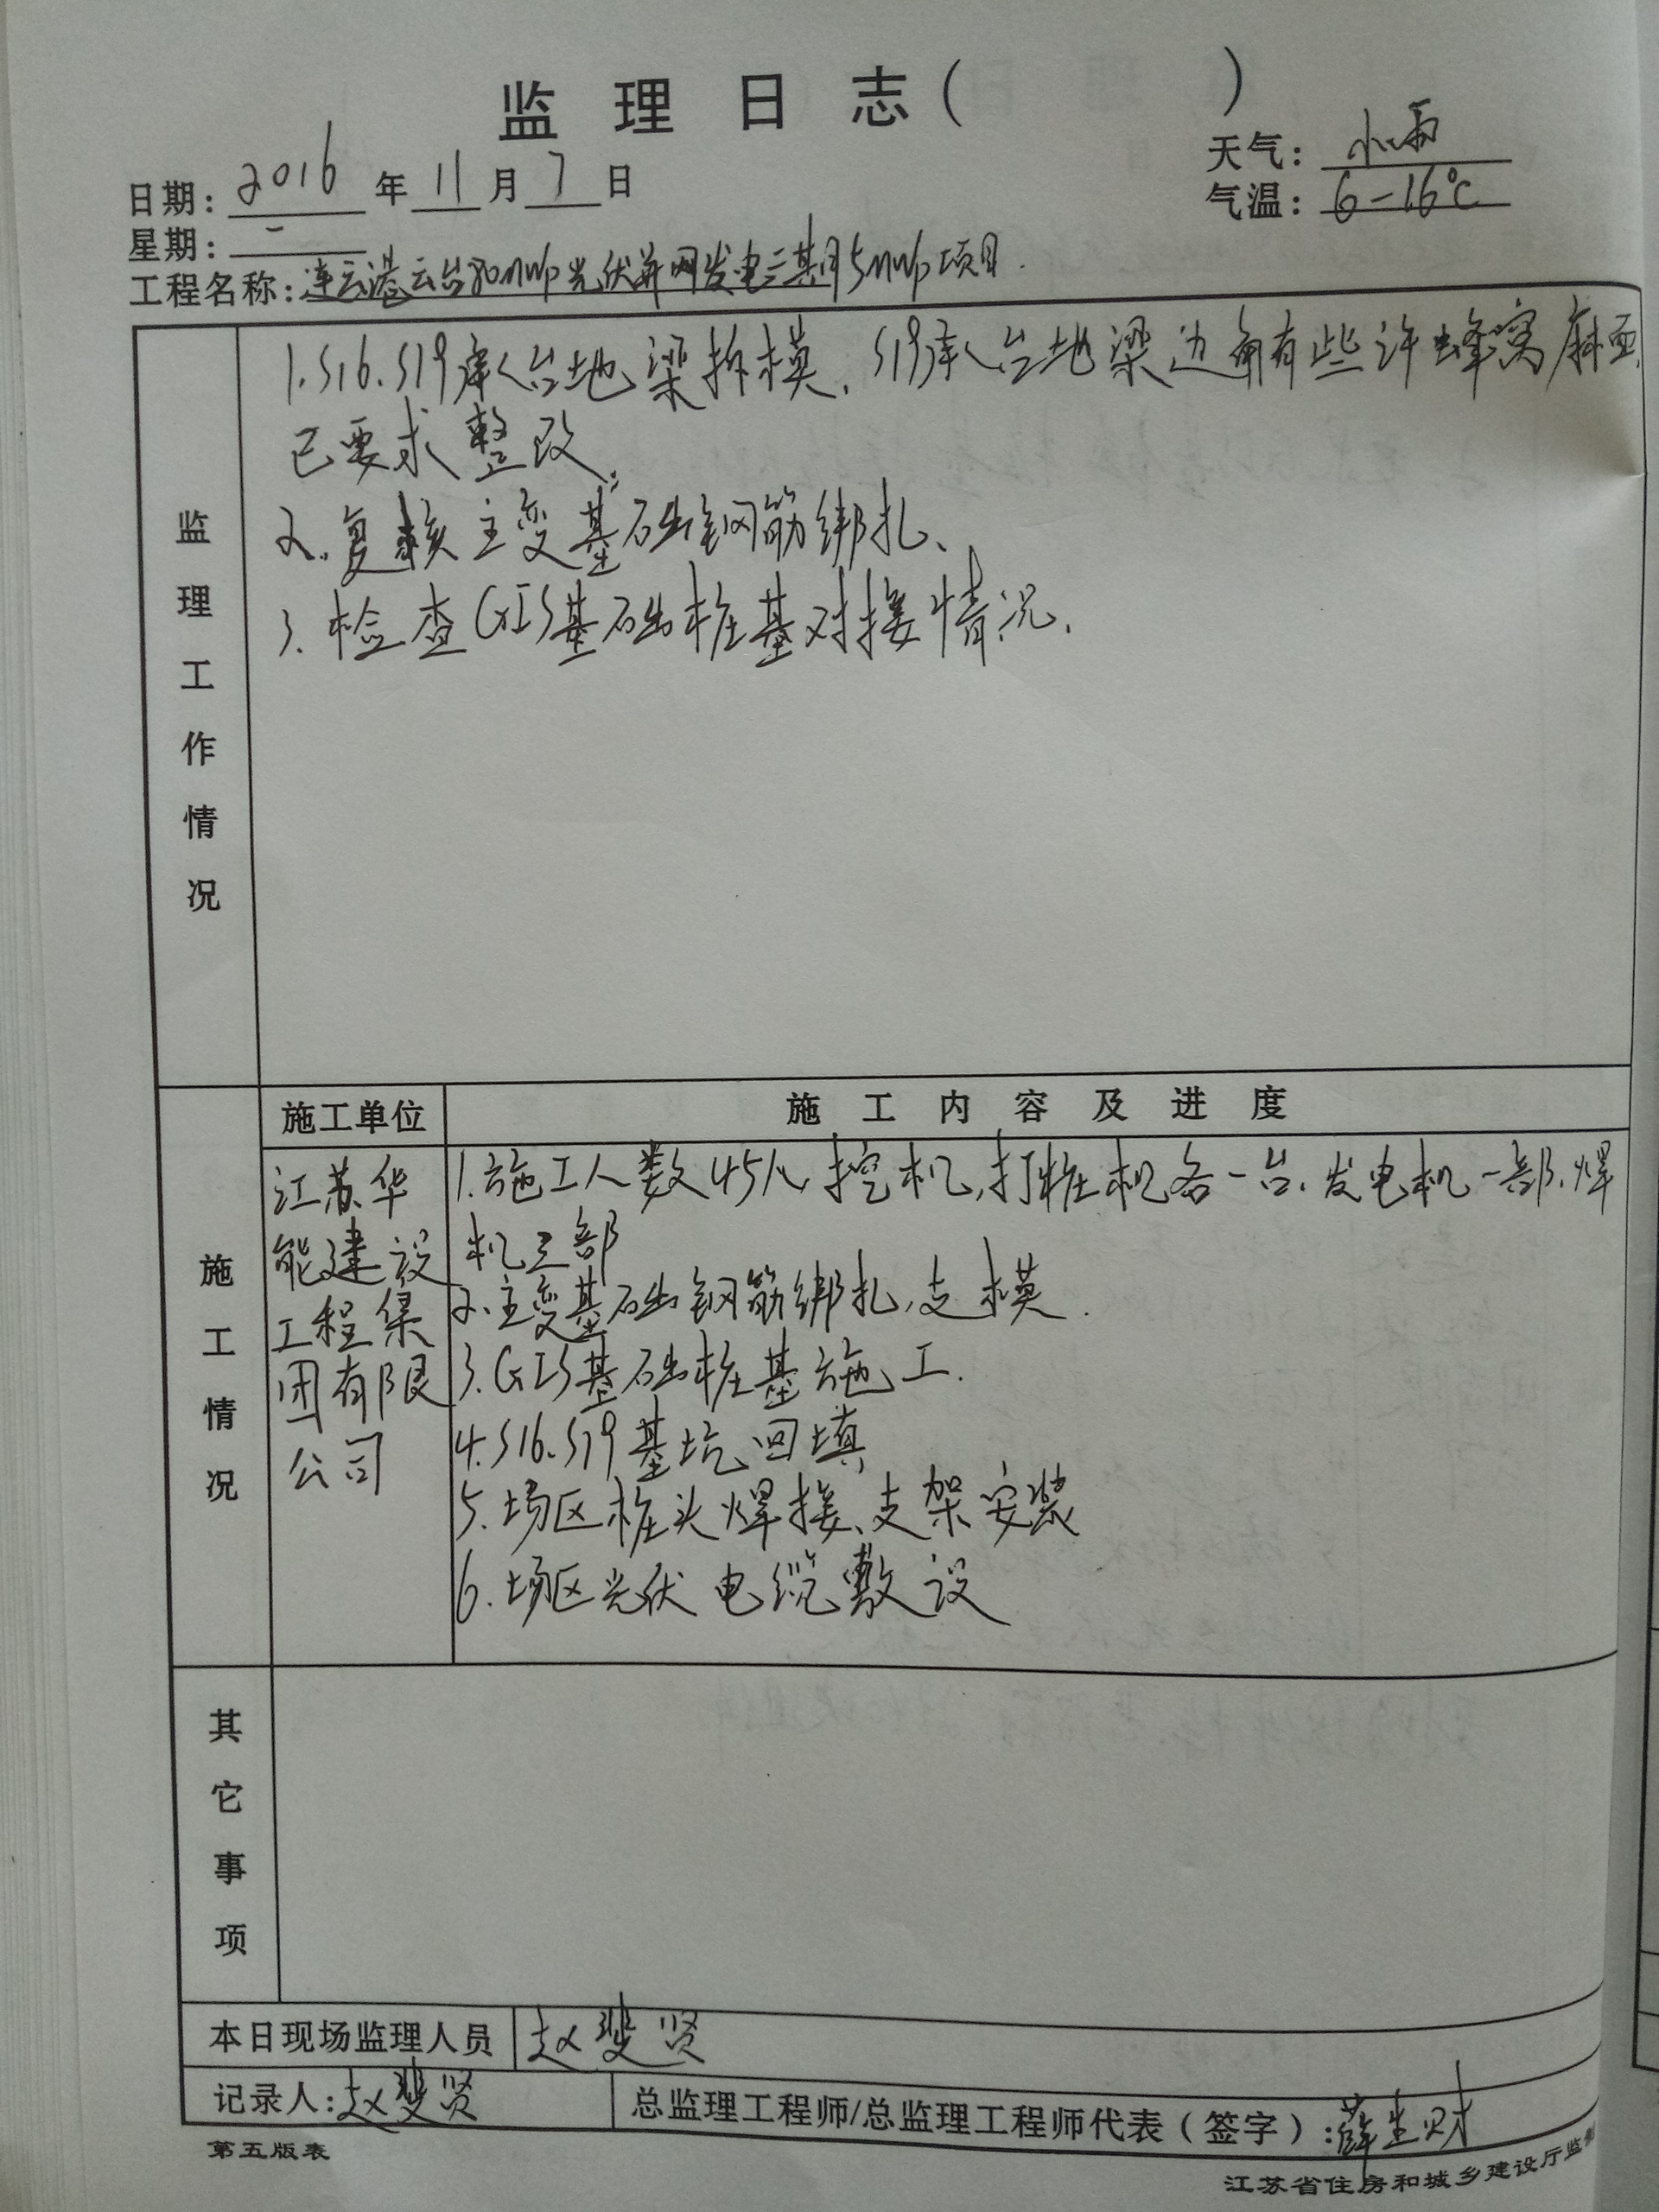 监理日志( )
日期: 2016 年 11 月 7 日
天气: 小雨
星期: 一
气温: 6-16℃
工程名称: 连云港云台80MWp光伏并网发电三期5MWp项目.
监理工作情况
1.S16.S19承台地梁拆模,S19承台地梁边角有些许蜂窝麻面,
已要求整改.
2.复核主变基础钢筋绑扎、
3.检查GIS基础桩基对接情况.
施工情况
施工单位
施工内容及进度
江苏华
能建设
工程集
团有限
公司
1.施工人数45人,挖机,打桩机各一台.发电机一部.焊
机三部
2.主变基础钢筋绑扎,支模.
3.GIS基础桩基施工.
4.S16.S19基坑回填
5.场区桩头焊接、支架安装
6.场区光伏电缆敷设
其它事项
本日现场监理人员 赵斐贤
记录人:赵斐贤
总监理工程师/总监理工程师代表(签字):薛
第五版表
江苏省住房和城乡建设厅监制